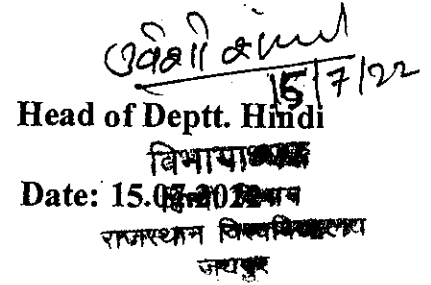 उर्वशी शर्मा
15/7/22
Head of Deptt. Hindi
विभागाध्यक्ष
Date: 15.07.2022
हिन्दी विभाग
राजस्थान विश्वविद्यालय
जयपुर